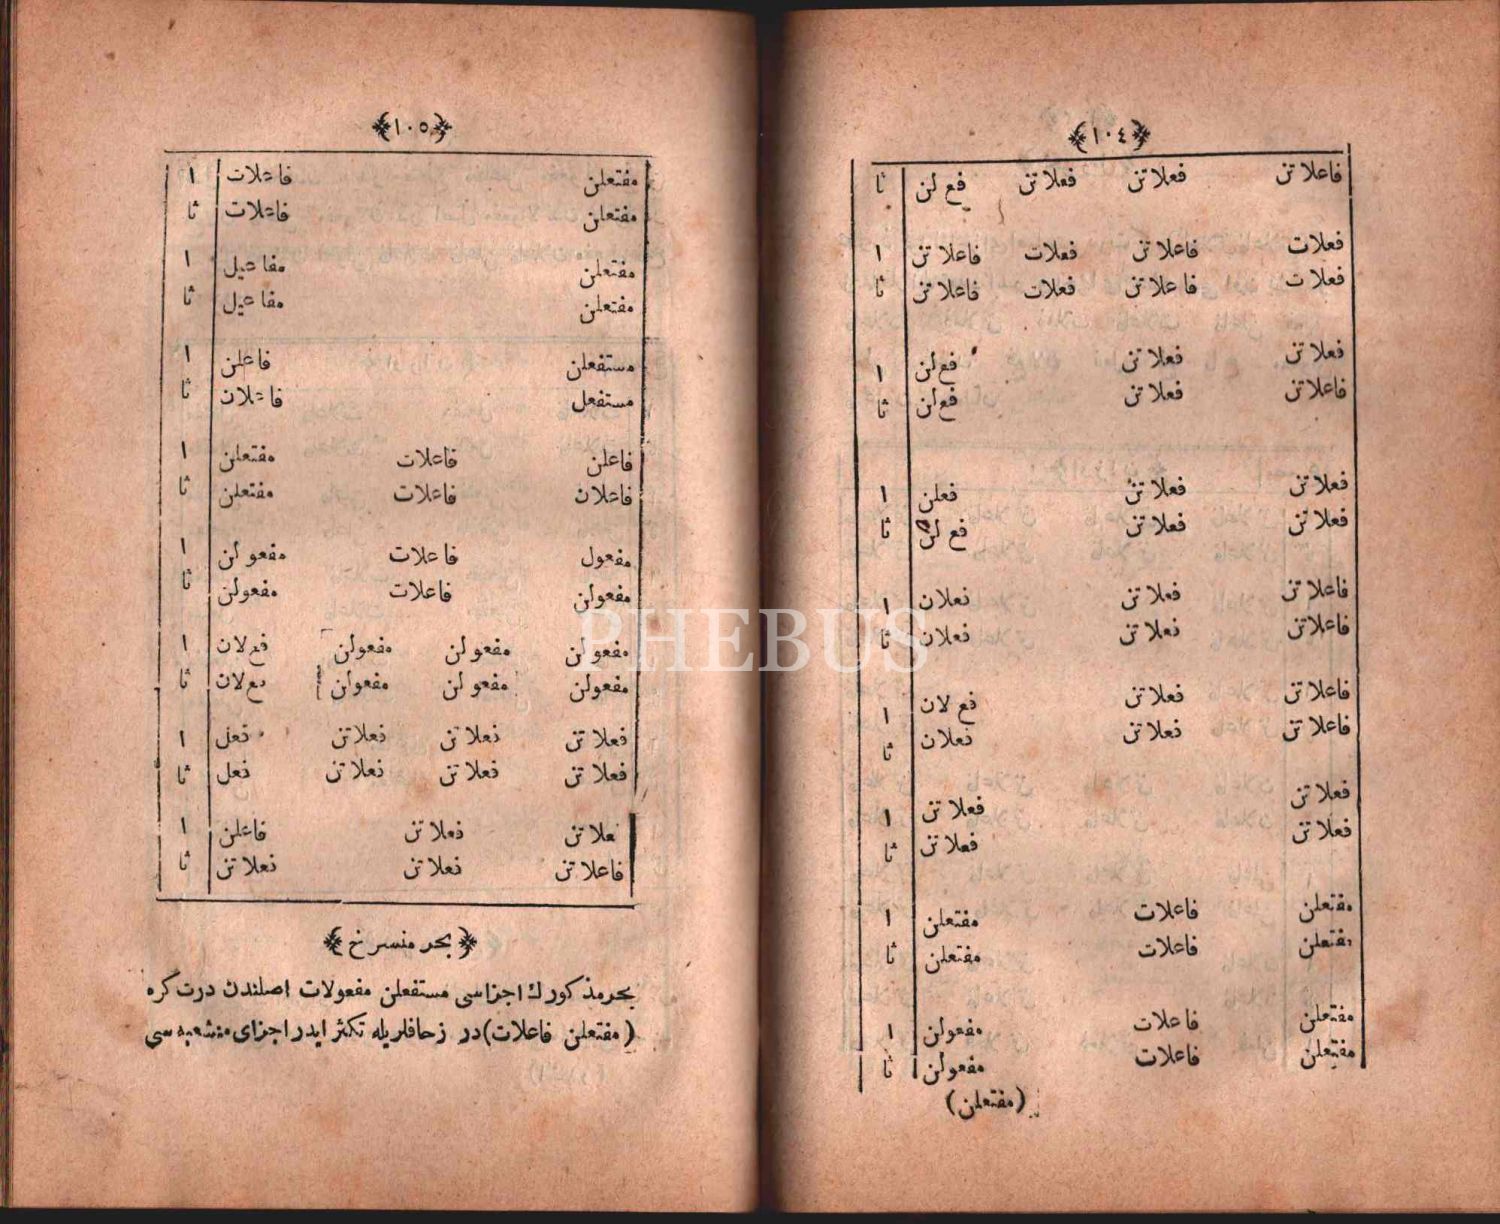 ﴿١٠٤﴾
فاعلاتن فعلاتن فعلاتن فع لن ثا
فعلات فاعلاتن فعلات فاعلاتن ١
فعلات فاعلاتن فعلات فاعلاتن ثا
فعلاتن فعلاتن فع لن ١
فاعلاتن فعلاتن فع لن ثا
فعلاتن فعلاتن فعلن ١
فعلاتن فعلاتن فع لن ثا
فاعلاتن فعلاتن فعلان ١
فاعلاتن فعلاتن فعلان ثا
فاعلاتن فعلاتن فع لان ١
فاعلاتن فعلاتن فعلان ثا
فعلاتن فعلاتن ١
فعلاتن فعلاتن ثا
مفتعلن فاعلات مفتعلن ١
مفتعلن فاعلات مفتعلن ثا
مفتعلن فاعلات مفعولن ١
مفتعلن فاعلات مفعولن ثا
(مفتعلن)
﴿١٠٥﴾
مفتعلن فاعلات ١
مفتعلن فاعلات ثا
مفتعلن مفاعيل ١
مفتعلن مفاعيل ثا
مستفعلن فاعلن ١
مستفعل فاعلان ثا
فاعلن فاعلات مفتعلن ١
فاعلان فاعلات مفتعلن ثا
مفعول فاعلات مفعولن ١
مفعولن فاعلات مفعولن ثا
مفعولن مفعولن مفعولن فع لان ١
مفعولن مفعولن مفعولن فع لان ثا
فعلاتن فعلاتن فعلاتن فعل ١
فعلاتن فعلاتن فعلاتن فعل ثا
فعلاتن فعلاتن فاعلن ١
فاعلاتن فعلاتن فعلاتن ثا
﴿بحر منسرخ﴾
بحر مذكورك اجزاسى مستفعلن مفعولات اصلندن درت كره
(مفتعلن فاعلات)در زحافلريله تكثر ايدر اجزاى منشعبه سى
PHEBUS